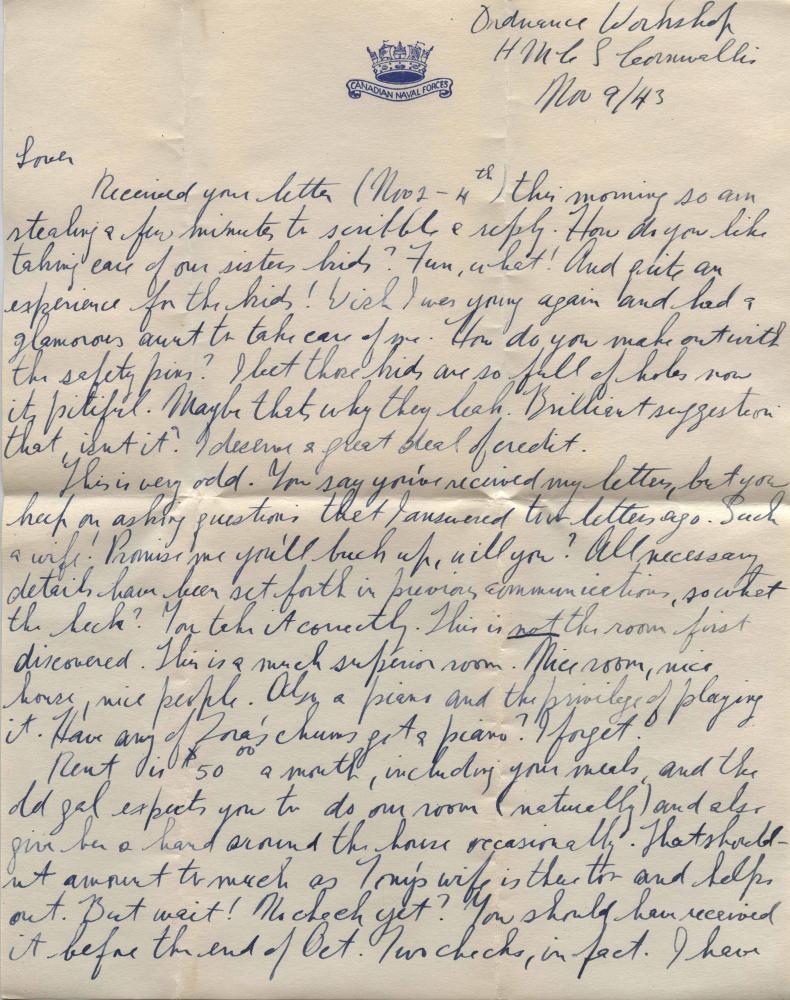 Ordnance Workshop
HMCS Cornwallis
Nov 9/43
CANADIAN NAVAL FORCES
Lover
Received your letter (Nov 2-4th) this morning so am
stealing a few minutes to scribble a reply. How do you like
taking care of our sisters kids? Fun, what! And quite an
experience for the kids! Wish I was young again and had a
glamorous aunt to take care of me. How do you make out with
the safety pins? I bet those kids are so full of holes now
its pitiful. Maybe thats why they leak. Brilliant suggestion
that, isnt it? I deserve a great deal of credit.
This is very odd. You say you've received my letters, but you
keep on asking questions that I answered two letters ago. Such
a wife! Promise me you'll buck up, will you? All necessary
details have been set forth in previous communications, so what
the heck? You take it correctly. This is not the room first
discovered. This is a much superior room. Nice room, nice
house, nice people. Also a piano and the privilege of playing
it. Have any of Zora's chums got a piano? I forget.
Rent is $50 00 a month, including your meals, and the
old gal expects you to do our room (naturally) and also
give her a hand around the house occasionally. That should-
nt amount to much as Tony's wife is there too and helps
out. But wait! No check yet? You should have received
it before the end of Oct. Two checks, in fact. I have